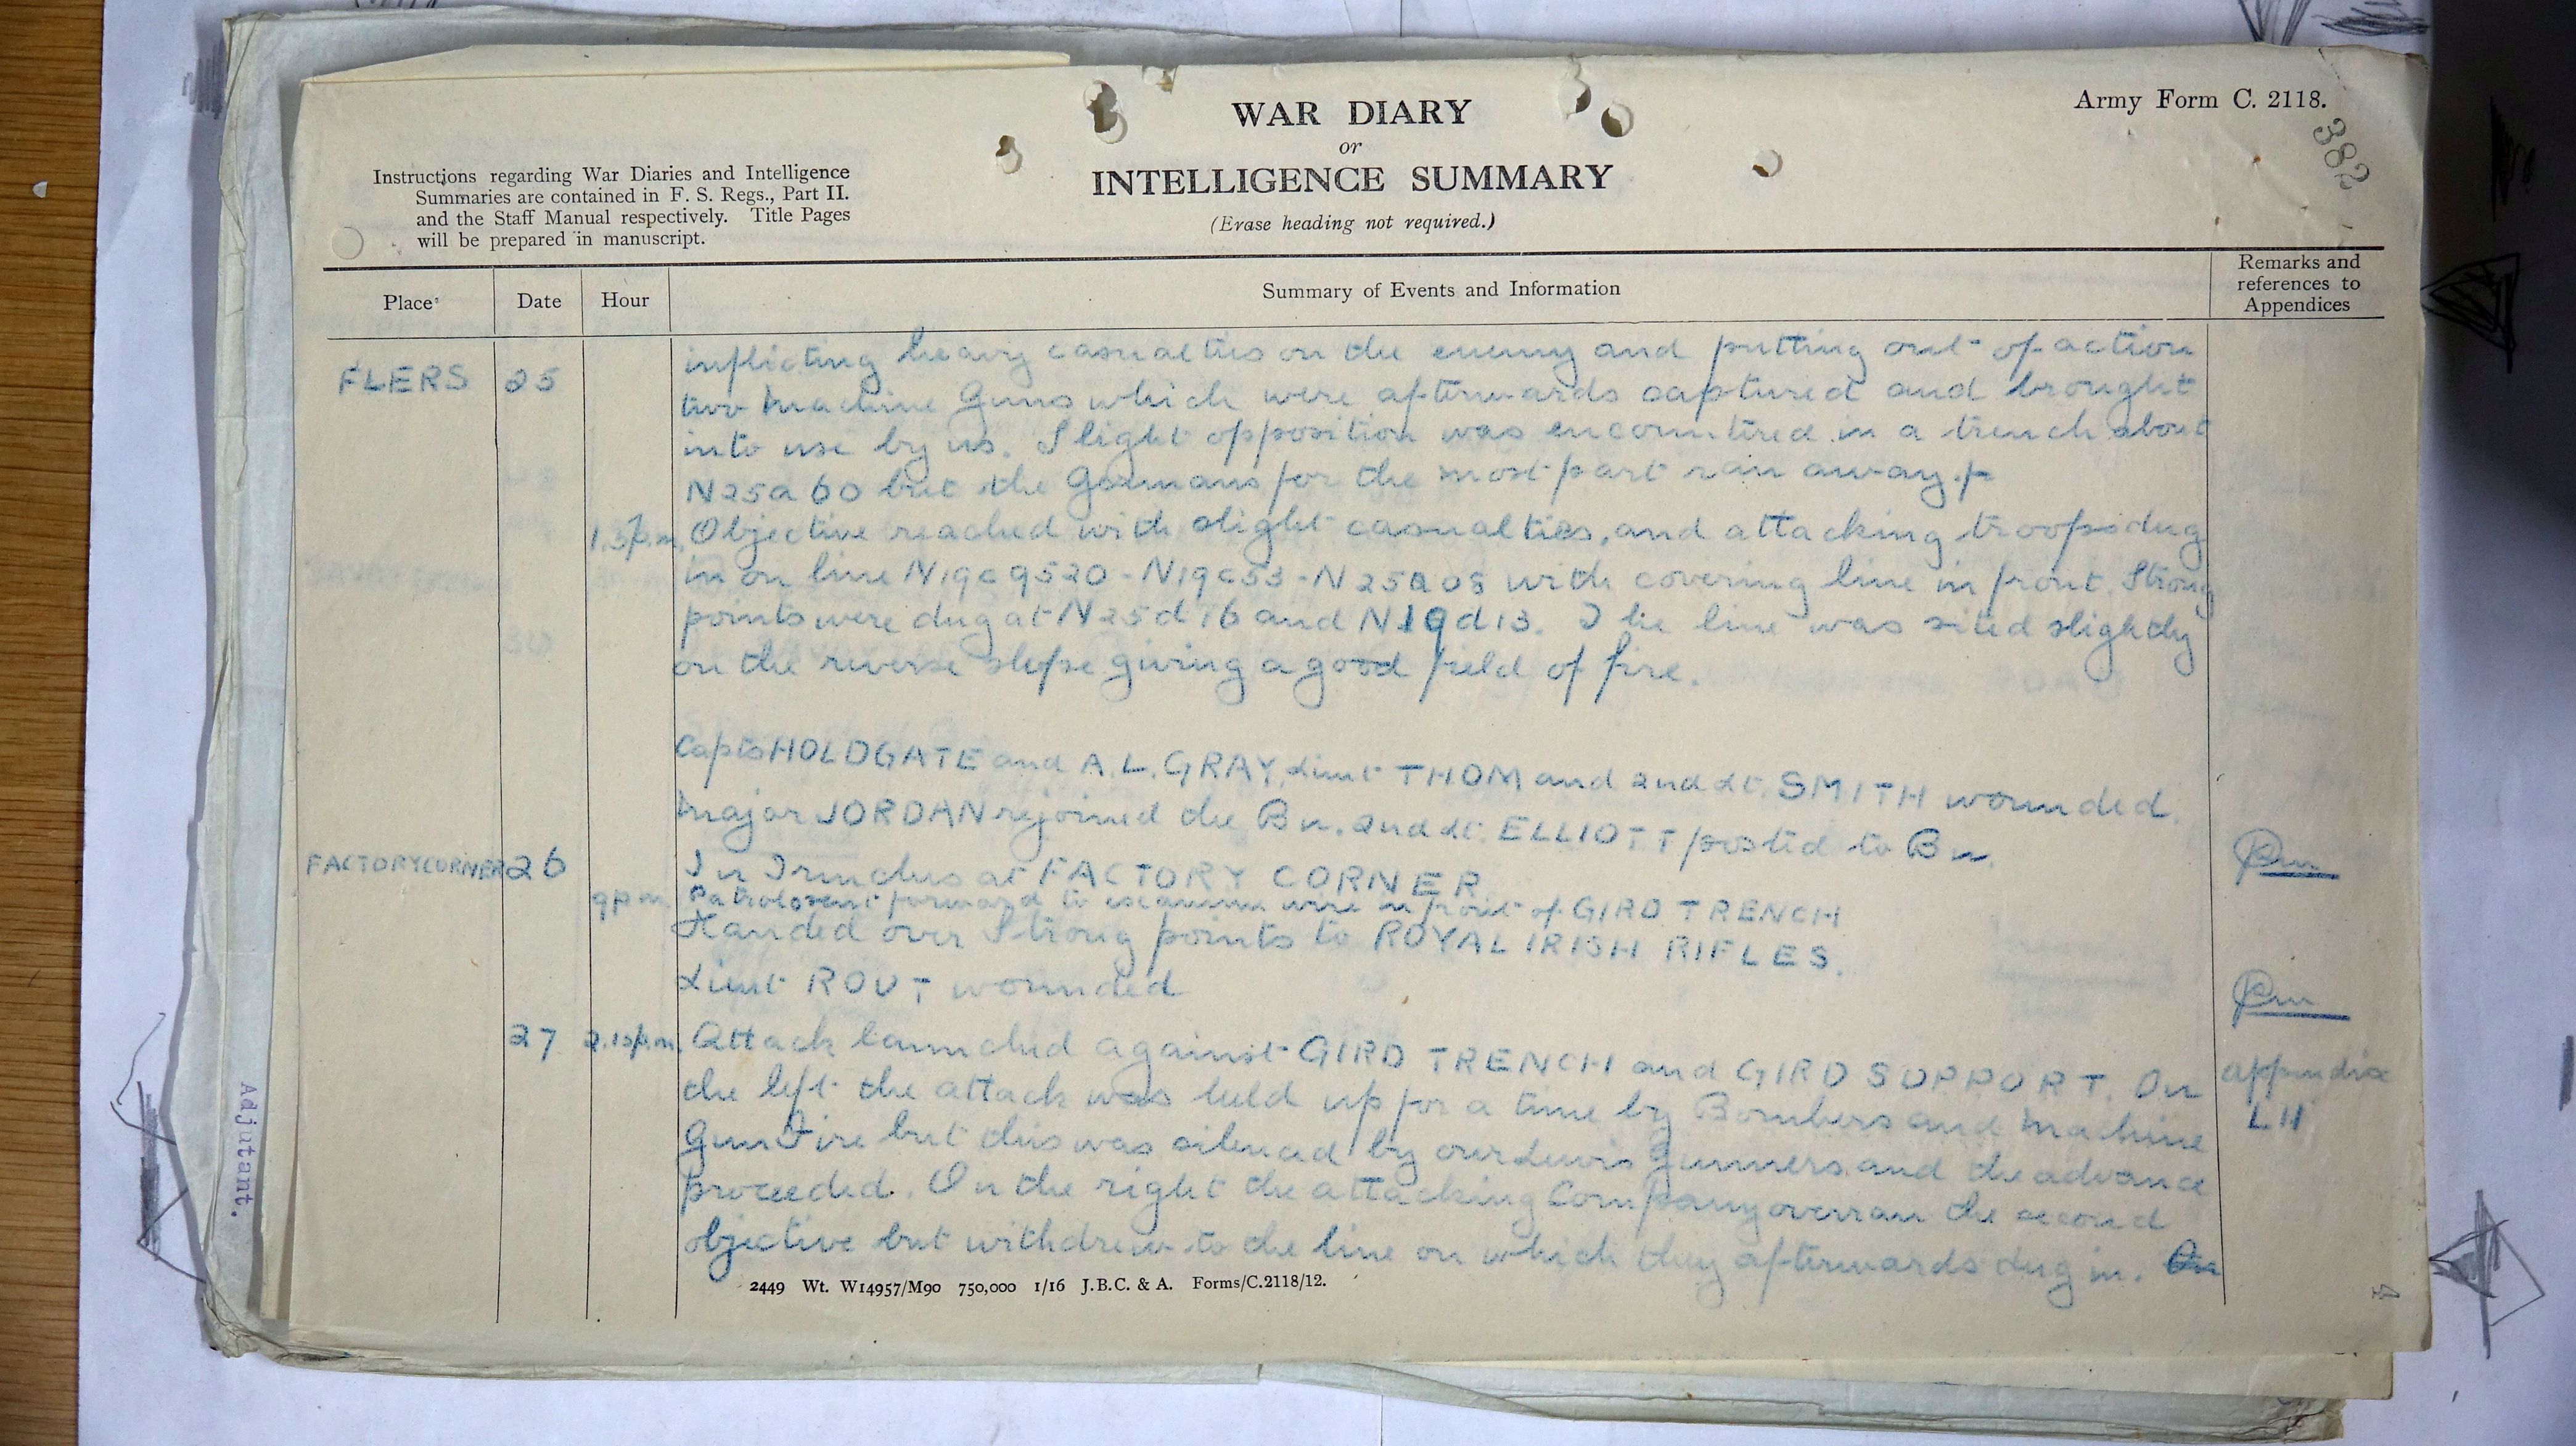 Army Form C. 2118.
382
WAR DIARY
or
INTELLIGENCE SUMMARY
(Erase heading not required.)
Instructions regarding War Diaries and Intelligence
Summaries are contained in F. S. Regs., Part II.
and the Staff Manual respectively. Title Pages
will be prepared in manuscript.
Place Date Hour Summary of Events and Information Remarks and references to Appendices
FLERS 25 inflicting heavy casualties on the enemy and putting out of action
two machine Guns which were afterwards captured and brought
into use by us. Slight opposition was encountered in a trench about
N25a60 but the Germans for the most part ran away.
Objective reached with slight casualties, and attacking troops dug
in on line N19c9520 - N19c53 - N25a08 with covering line in front. Strong
points were dug at N25d16 and N19d13. The line was sited slightly
on the reverse slope giving a good field of fire.
Capts HOLDGATE and A.L. GRAY, Lieut THOM and 2nd Lt. SMITH wounded.
Major JORDAN rejoined the Bn. 2nd Lt. ELLIOTT posted to Bn.
FACTORY CORNER 26 In Trenches at FACTORY CORNER.
9pm Patrols sent forward to examine wire in front of GIRD TRENCH
Handed over Strong points to ROYAL IRISH RIFLES.
Lieut ROUT wounded
27 2.15p.m. Attack launched against GIRD TRENCH and GIRD SUPPORT. On appendix
the left the attack was held up for a time by Bombers and machine LII
Gun Fire but this was silenced by our Lewis Gunners and the advance
proceeded. On the right the attacking Company overran the second
objective but withdrew to the line on which they afterwards dug in.
2449 Wt. W14957/M90 750,000 1/16 J.B.C. & A. Forms/C.2118/12.
Adjutant.
4